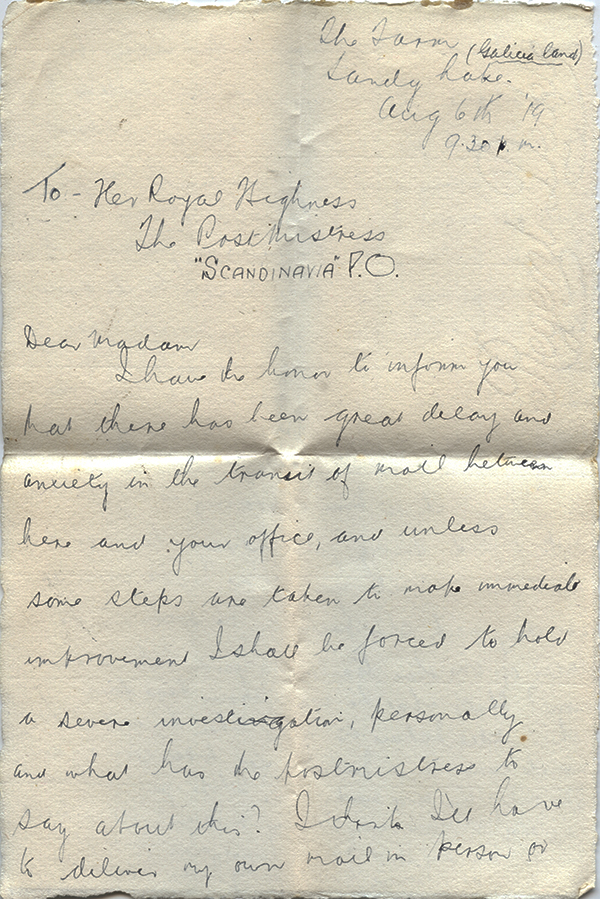 The Farm (Galicia land)
Sandy Lake.
Aug 6th '19
9.30 p.m.
To - Her Royal Highness
The Postmistress
"SCANDINAVIA" P.O.
Dear Madam
I have the honor to inform you
that there has been great delay and
anxiety in the transit of mail between
here and your office, and unless
some steps are taken to make immediate
improvement I shall be forced to hold
a severe investigation, personally
and what has the postmistress to
say about this? I think I'll have
to deliver my own mail in person or